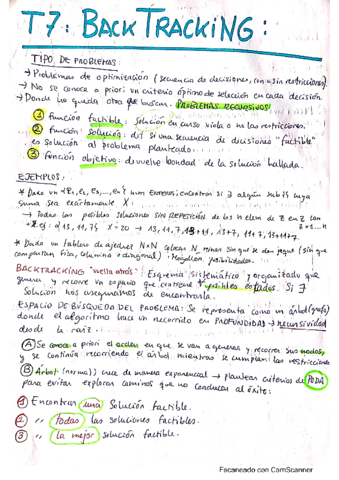 T7: BACKTRACKING:
TIPO DE PROBLEMAS:
→ Problemas de optimización (secuencia de decisiones, con o sin restricciones).
→ No se conoce a priori un criterio óptimo de selección en cada decisión.
→ Donde no queda otra que buscar. PROBLEMAS RECURSIVOS:
1 función factible: solución en curso viola o no las restricciones.
2 función solución: det si una secuencia de decisiones "factible"
es solución al problema planteado.
3 función objetivo: devuelve bondad de la solución hallada.
EJEMPLOS:
suma sea exactamente X:
→ Todas las posibles soluciones SIN REPETICIÓN de los
* Dado un tablero de ajedrez N×N colocar N reinas sin que se den jaque (sin que
compartan fila, columna o diagonal)
BACKTRACKING "vuelta atrás": Esquema sistemático y organizado que
genera y recorre un espacio que contiene posibles estados. Si ∃
solución nos aseguramos de encontrarla.
ESPACIO DE BÚSQUEDA DEL PROBLEMA: Se representa como un árbol (grafo)
donde el algoritmo hace un recorrido en PROFUNDIDAD → RECURSIVIDAD
desde la raíz.
A Se conoce a priori el orden en que se van a generar y recorrer sus nodos,
y se continúa recorriendo el árbol mientras se cumplan las restricciones
B Árbol (norm) crece de manera exponencial → plantear criterios de PODA
para evitar explorar caminos que no conducen al éxito:
1 Encontrar una solución factible.
2 " todas las soluciones factibles.
3 " la mejor solución factible.
Escaneado con CamScanner